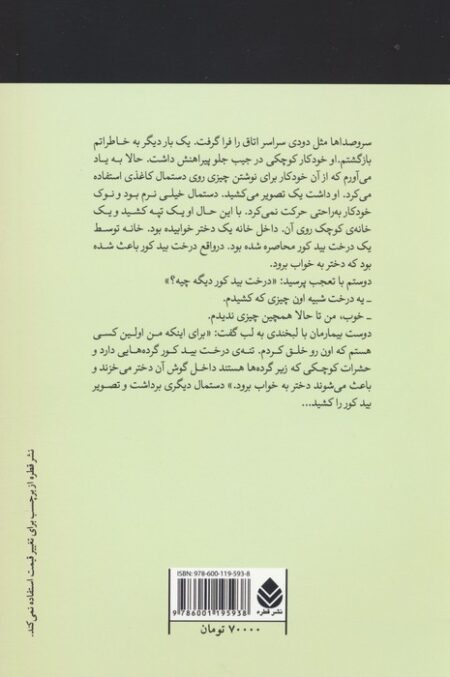 سروصداها مثل دودی سراسر اتاق را فرا گرفت. یک بار دیگر به خاطراتم
بازگشتم. او خودکار کوچکی در جیب جلو پیراهنش داشت. حالا به یاد
می‌آورم که از آن خودکار برای نوشتن چیزی روی دستمال کاغذی استفاده
می‌کرد. او داشت یک تصویر می‌کشید. دستمال خیلی نرم بود و نوک
خودکار به‌راحتی حرکت نمی‌کرد. با این حال او یک تپه کشید و یک
خانه‌ی کوچک روی آن. داخل خانه یک دختر خوابیده بود. خانه توسط
یک درخت بید کور محاصره شده بود. درواقع درخت بید کور باعث شده
بود که دختر به خواب برود.
دوستم با تعجب پرسید: «درخت بید کور دیگه چیه؟»
ـ یه درخت شبیه اون چیزی که کشیدم.
ـ خوب، من تا حالا همچین چیزی ندیدم.
دوست بیمارمان با لبخندی به لب گفت: «برای اینکه من اولین کسی
هستم که اون رو خلق کردم. تنه‌ی درخت بید کور گرده‌هایی دارد و
حشرات کوچکی که زیر گرده‌ها هستند داخل گوش آن دختر می‌خزند و
باعث می‌شوند دختر به خواب برود.» دستمال دیگری برداشت و تصویر
بید کور را کشید...
نشر قطره از برچسب برای تغییر قیمت استفاده نمی‌کند.
ISBN: 978-600-119-593-8
9 786001 195938
نشر قطره
۷۰۰۰۰ تومان